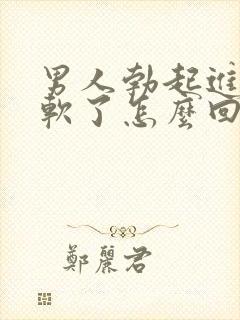 男人勃起進
軟了怎麼回
鄭麗君